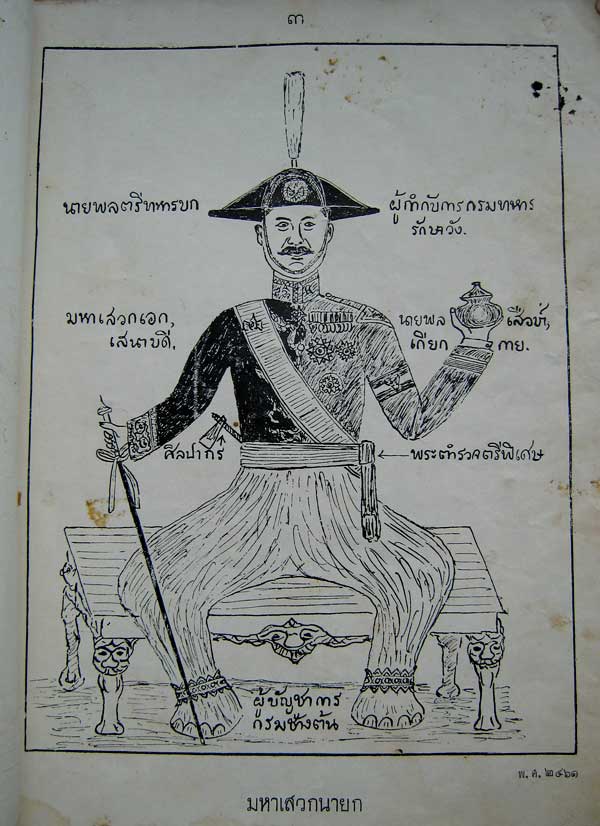 ๓
นายพลตรีทหารบก
ผู้กำกับการกรมทหาร
รักษาวัง.
มหาเสวกเอก,
เสนาบดี.
นายพล เสือป่า,
เกียก กาย.
ศิลปากร
พระตำรวจตรีพิเศษ
ผู้บัญชาการ
กรมช่างต้น
พ. ศ. ๒๔๖๑
มหาเสวกนายก